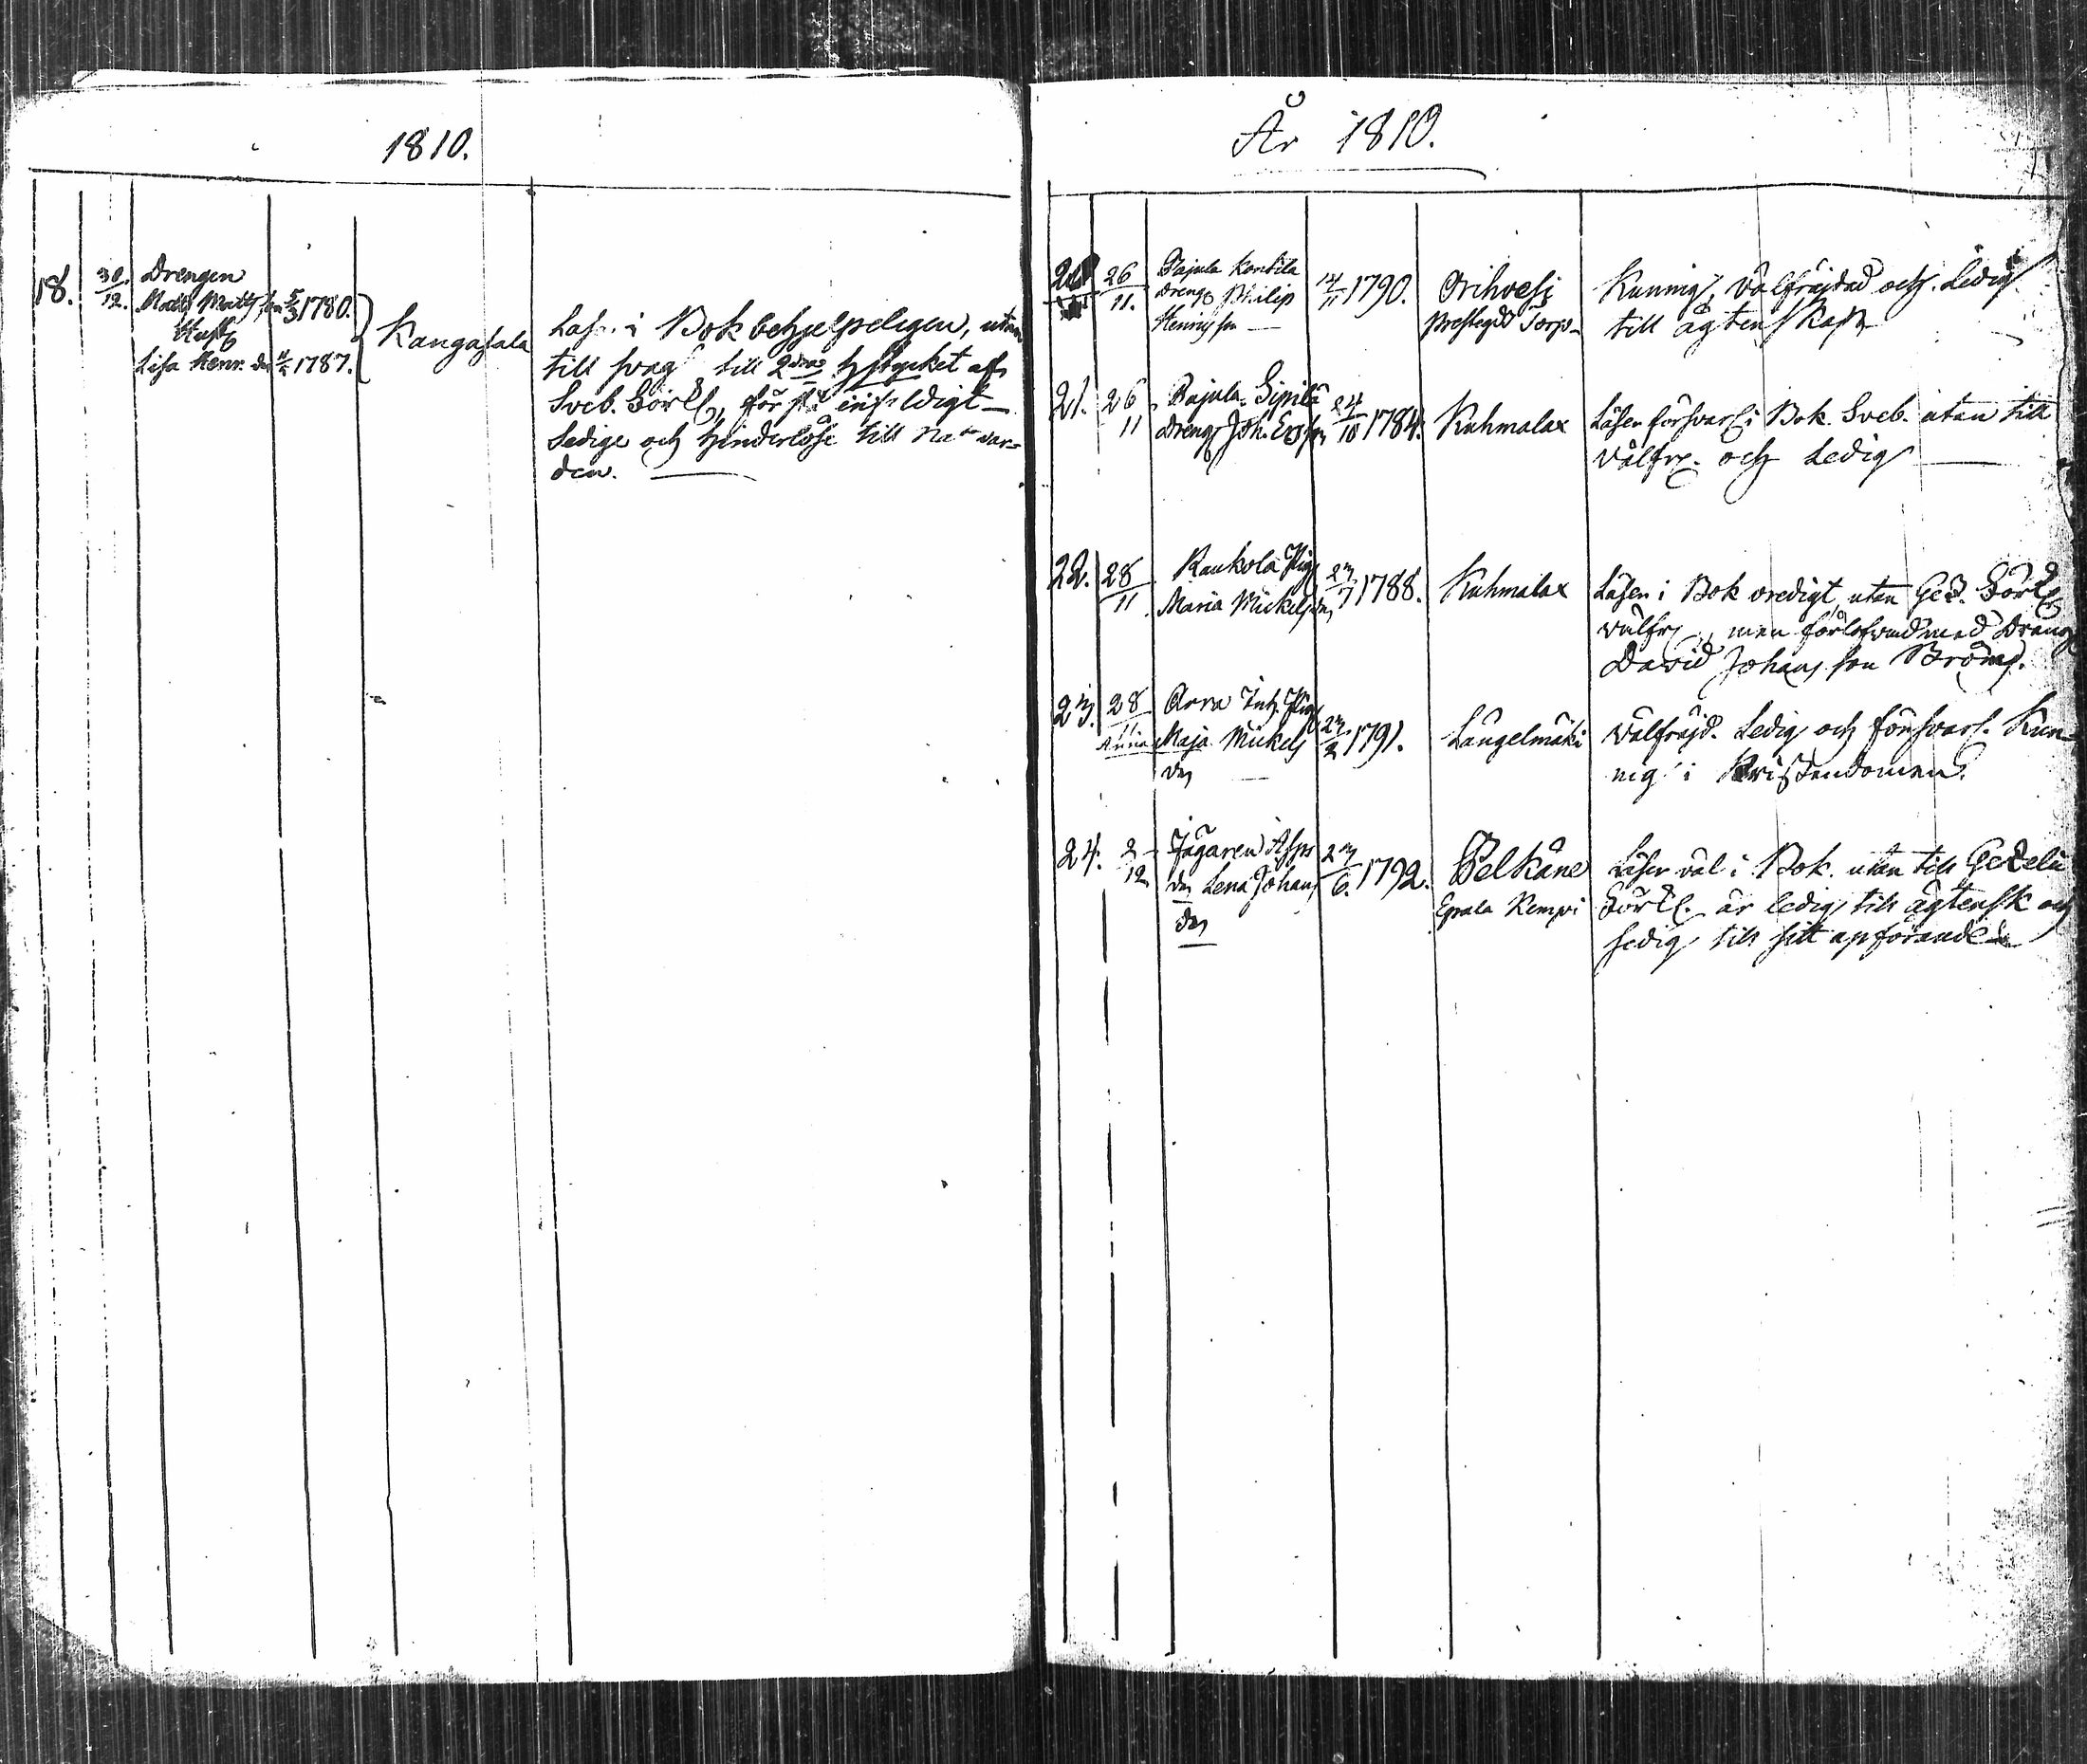 1810.
18. 30/12. Drengen
Matts Matts son 5/3 1780.
Hust.
Lisa Henr. dr 4/2 1787.
Kangasala
Läser i Bok behjelpeligen, utan
till svag till 2dra Hstycket af
Sveb. Förkl, förstå enfaldigt
Sedige och hinderlöse till Nattvar-
den.
År 1810.
20 26/11. Pajula Konttila
Dreng Philip
Henrics son
14/11 1790.
Orihvesi
Prestegds Torp
Kunnig, välfräjdad och Ledig
till ägtenskap
21. 26/11 Pajula Sipilä
Dreng Joh. Ers son
24/10 1784.
Kuhmalax
Läser försvarl. i Bok. Sveb. utan till
välfr. och Ledig
22. 28/11 Raukola Pig
Maria Mickelsdr
23/7 1788.
Kuhmalax
Läser i Bok oredigt utan Gez. Förkl
välfr, men förlofvad med Dräng
David Johans son Broms.
23. 28/11 Arra Inh. Pig
Anna Maja Mickels
dr
23/2 1791.
Längelmäki
välfräjd. Ledig och försvarl. Kun-
nig i Kristendomen.
24. 2/12 Jägaren Asps
dr Lena Johans
dr
23/6. 1792.
Pelkäne
Epala Kempi
Läser väl i Bok. utan till Gezelii
Förkl. är ledig till ägtensk och
sedig till sitt upförande